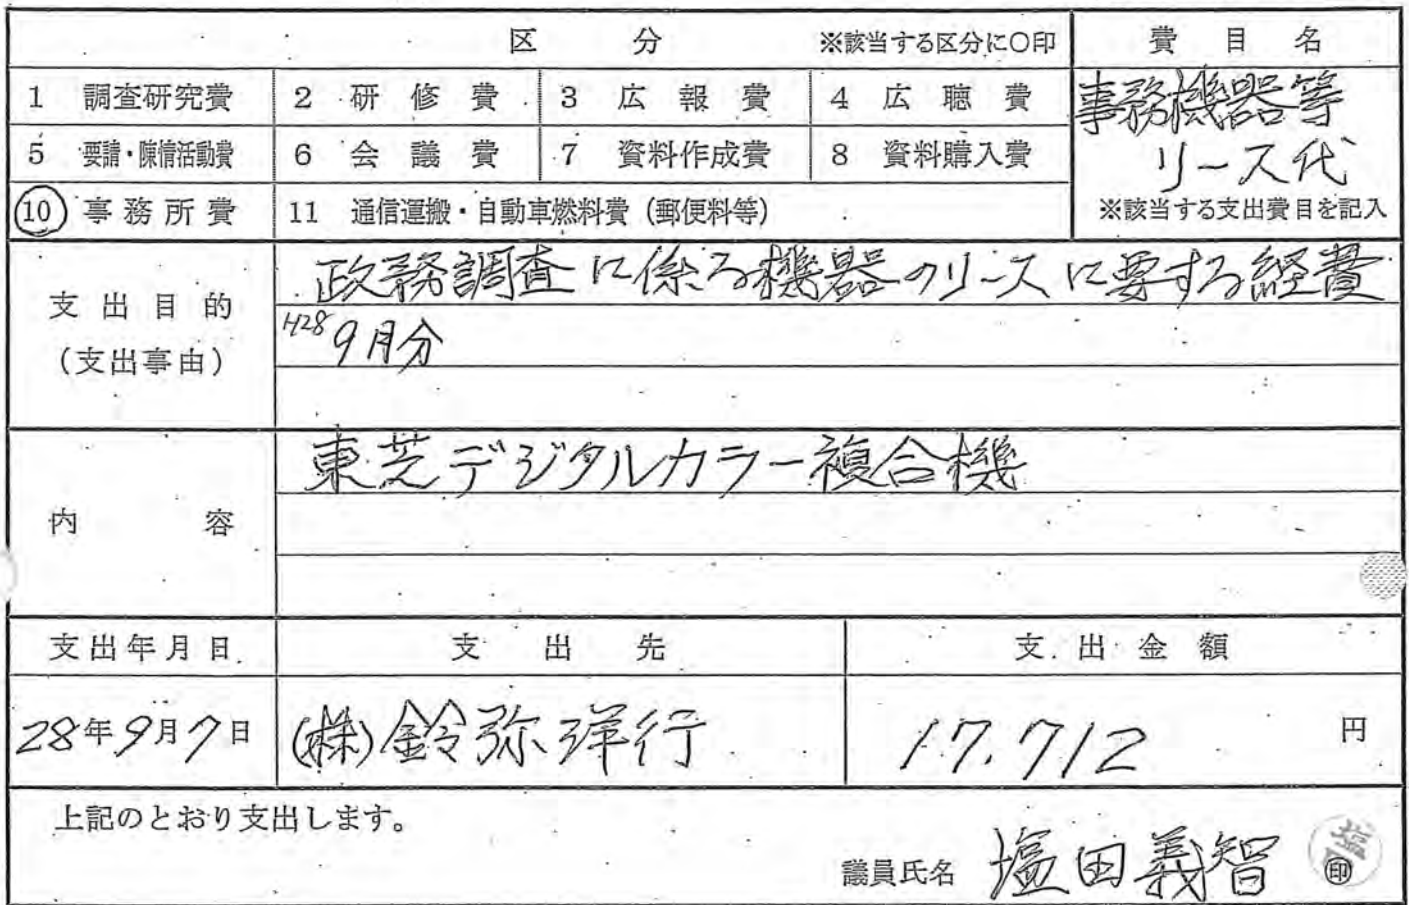 区分 ※該当する区分に○印 費目名
1 調査研究費 2 研修費 3 広報費 4 広聴費 事務機器等
5 要請・陳情活動費 6 会議費 7 資料作成費 8 資料購入費 リース代
10 事務所費 11 通信運搬・自動車燃料費(郵便料等) ※該当する支出費目を記入
支出目的
(支出事由)
政務調査に係る機器のリースに要する経費
H28 9月分
内容
東芝デジタルカラー複合機
支出年月日 支出先 支出金額
28年9月7日 (株)鈴弥洋行 17.712 円
上記のとおり支出します。
議員氏名 塩田義智 印